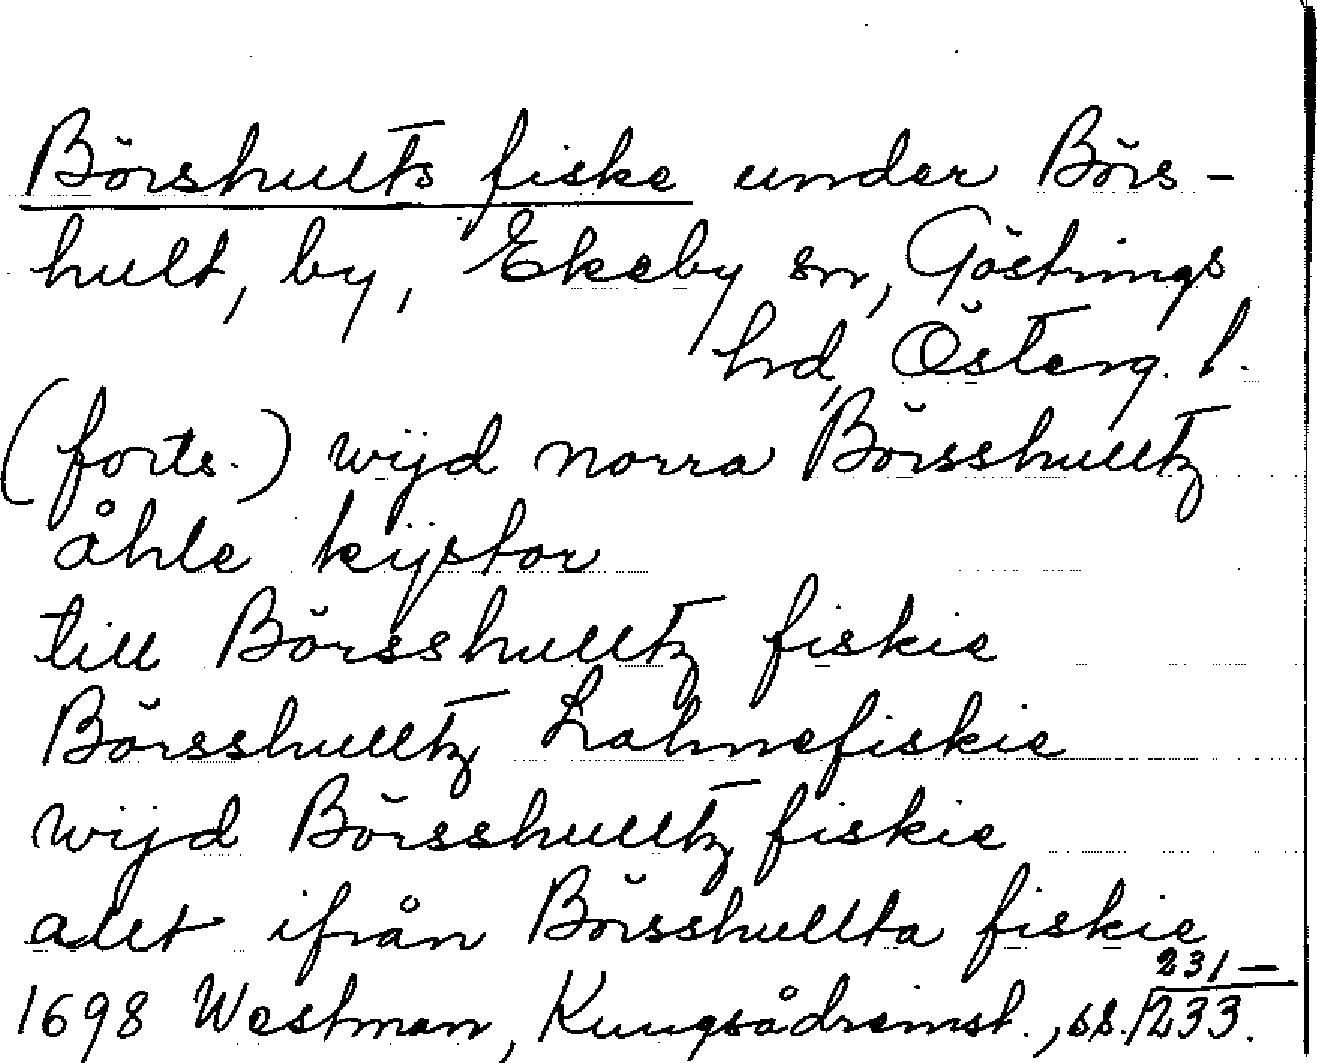 Börshults fiske under Börs-
hult, by, Ekeby sn, Göstrings
hrd, Österg. l.
(forts.) wijd norra Börsshulltz
åhle kijstor
till Börsshulltz fiskie
Börsshulltz Lahnefiskie
wijd Börsshulltz fiskie
alet ifrån Börsshullta fiskie
1698 Westman, Kungsådreinst., ss. 231–
233.